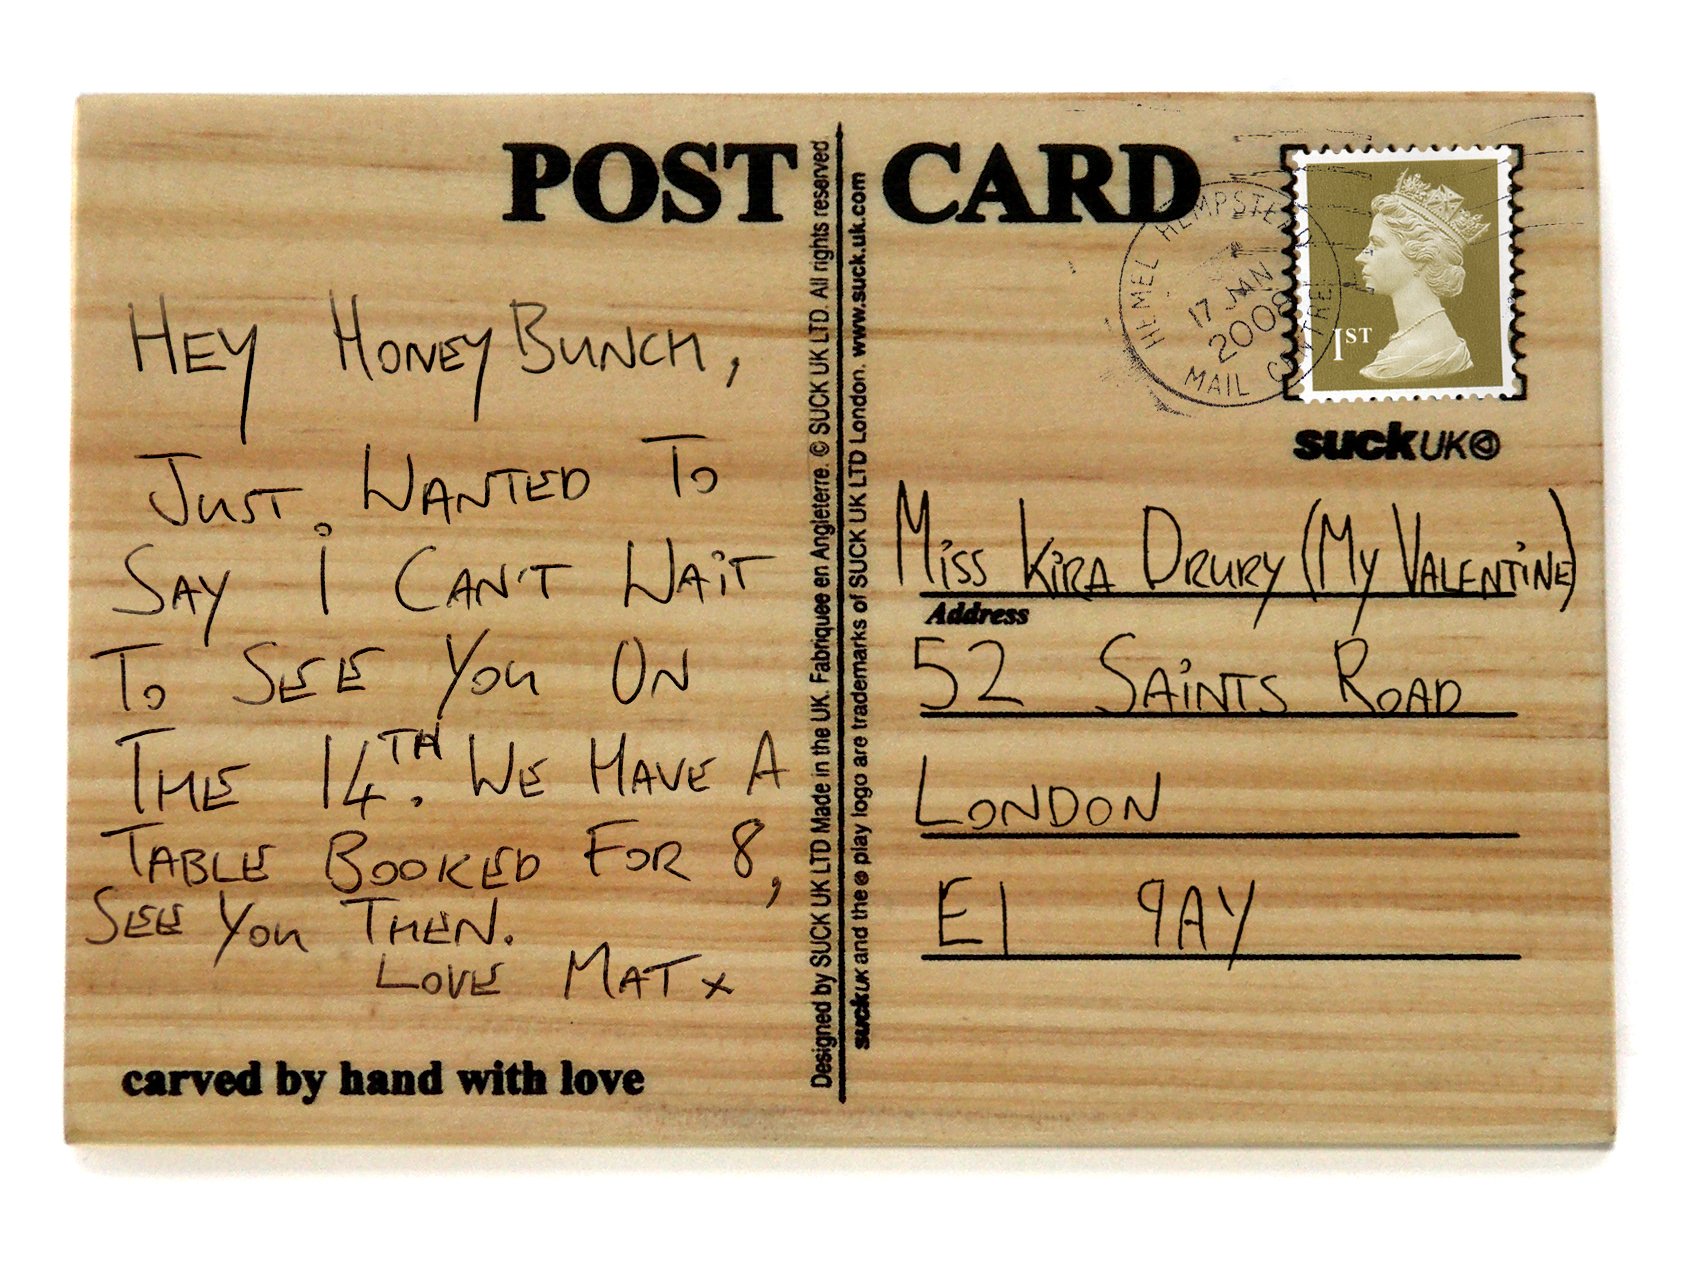 POST CARD
HEMEL HEMPSTEAD
17 JAN
2008
MAIL CENTRE
1ST
suckUK
HEY HONEY BUNCH,
JUST WANTED TO
SAY I CAN'T WAIT
TO SEE YOU ON
THE 14TH. WE HAVE A
TABLE BOOKED FOR 8,
SEE YOU THEN.
LOVE MAT x
carved by hand with love
Designed by SUCK UK LTD Made in the UK. Fabriquee en Angleterre. © SUCK UK LTD. All rights reserved.
suckUK and the play logo are trademarks of SUCK UK LTD London. www.suck.uk.com
MISS KIRA DRURY (MY VALENTINE)
Address
52 SAINTS ROAD
LONDON
E1 9AY